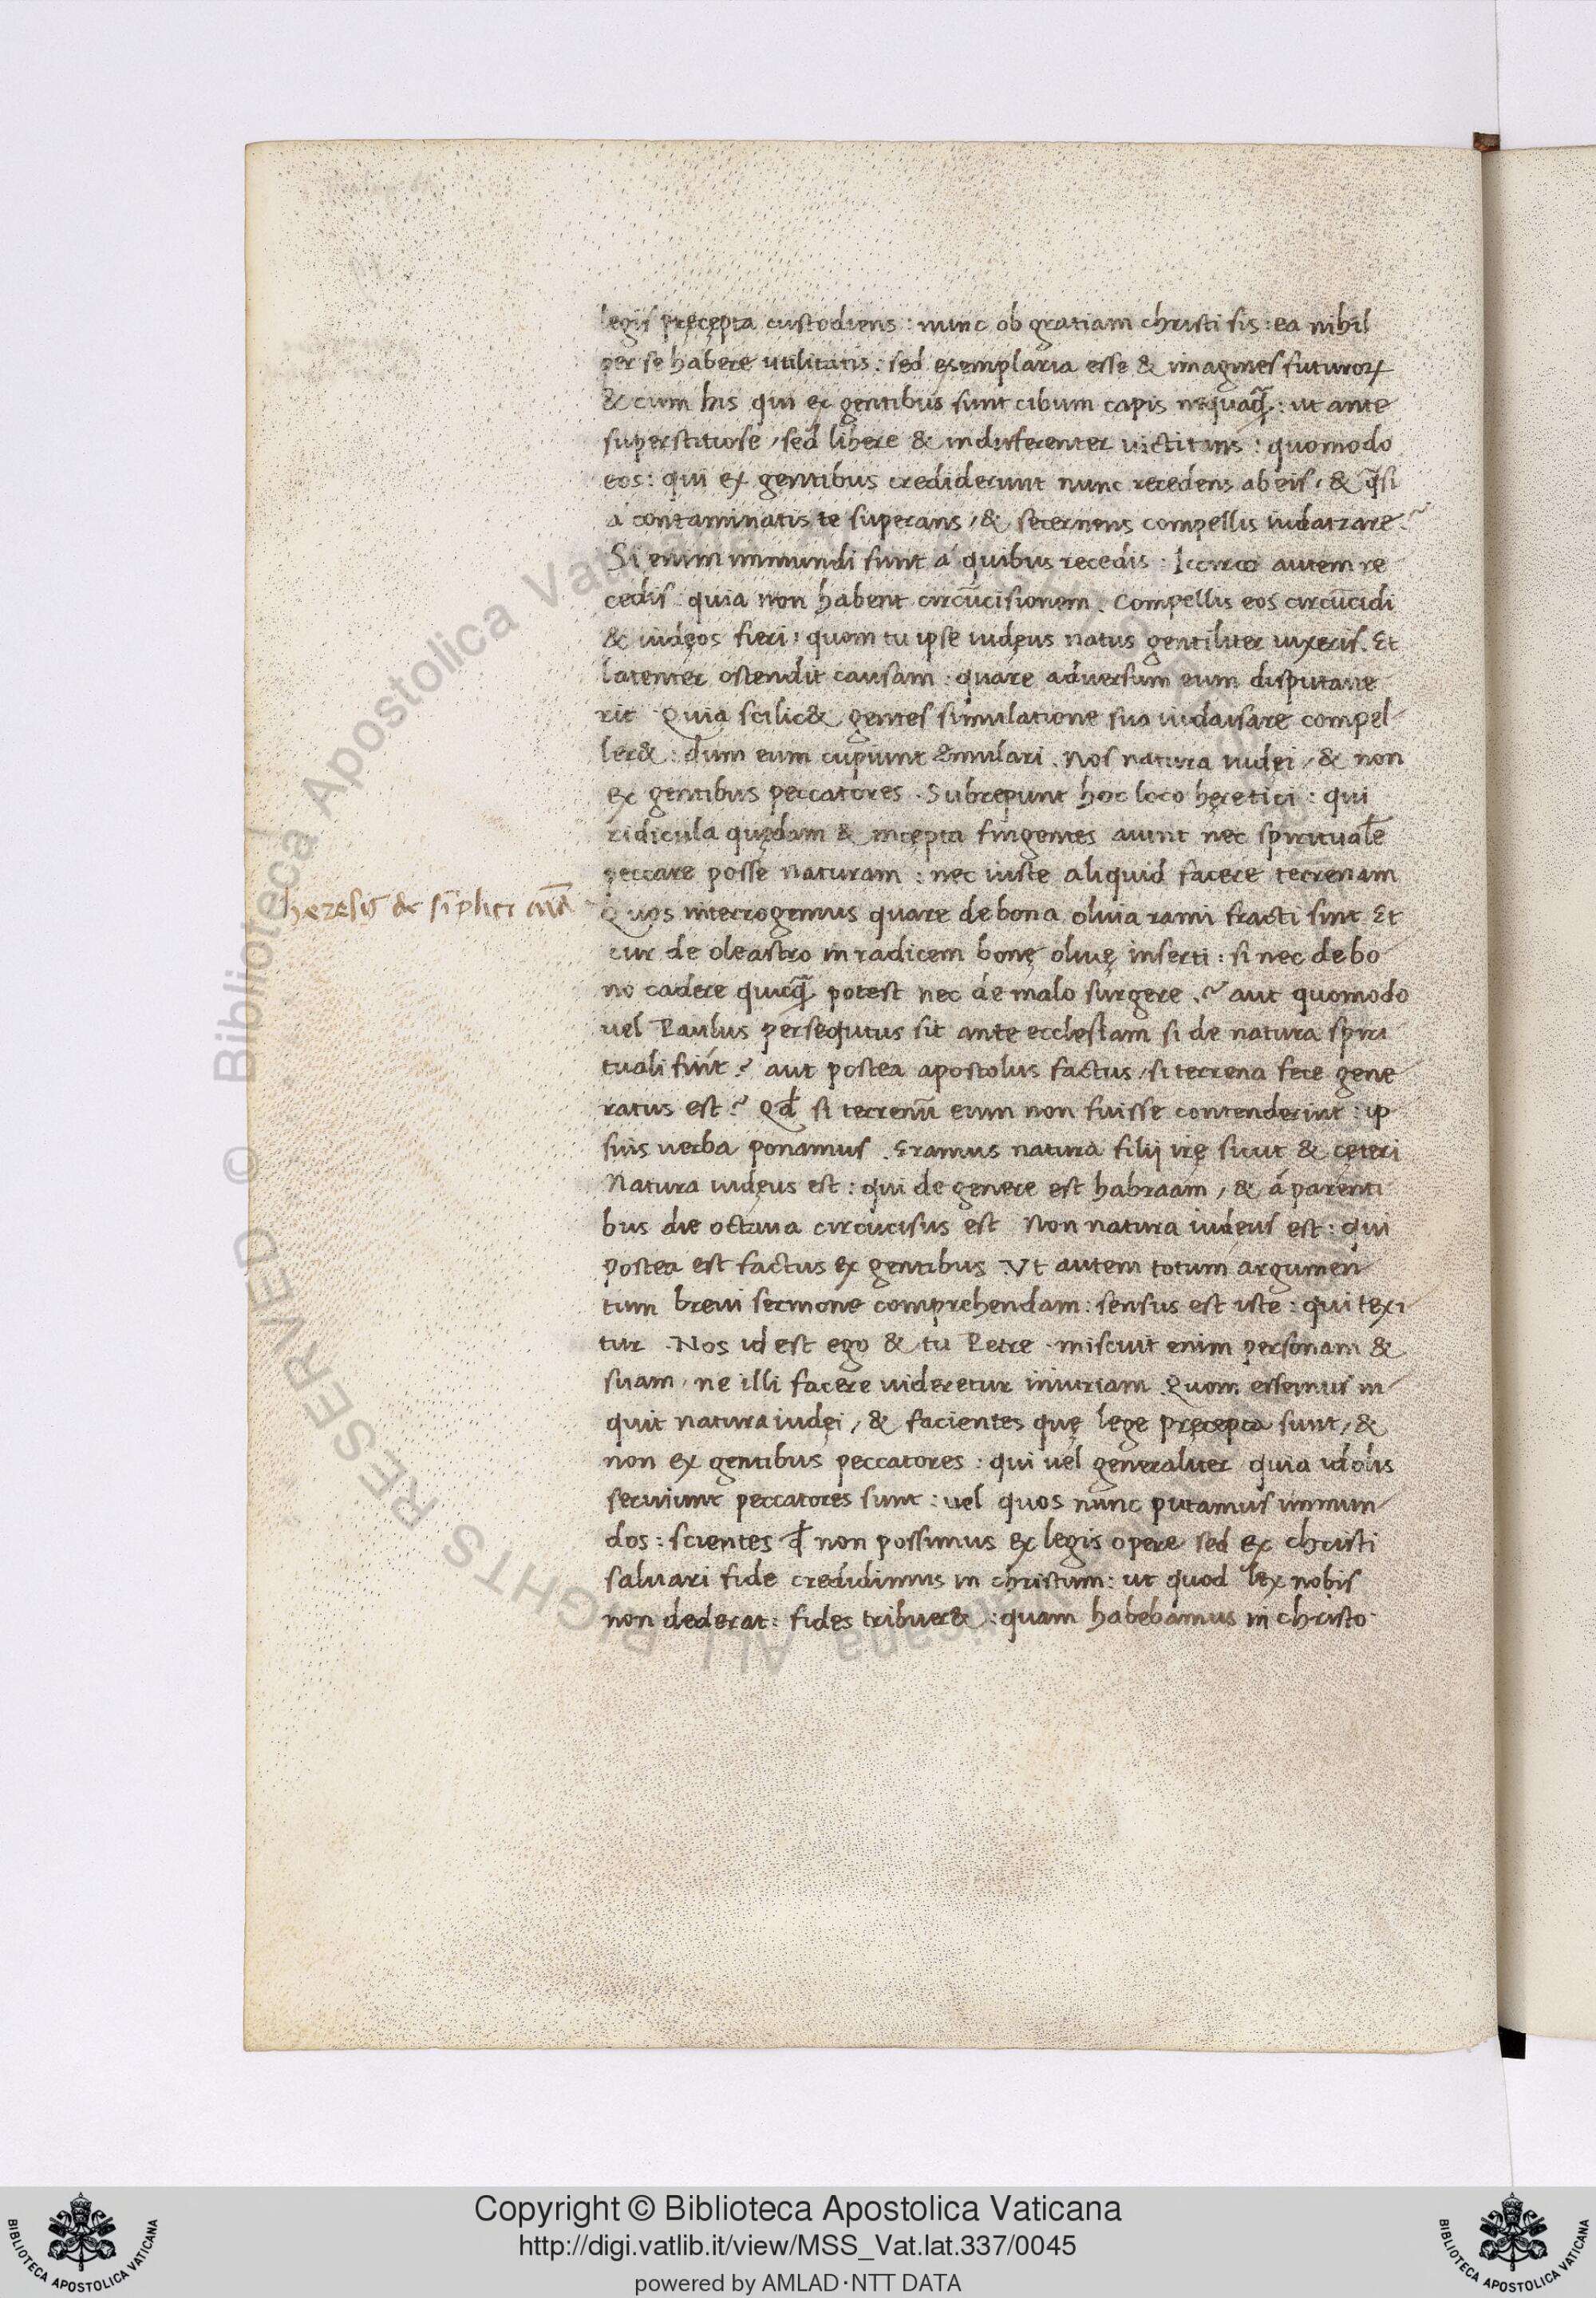 legis pręcępta custodiens : nunc ob gratiam christi sis : ea nihil
per se habere utilitatis : sed exemplaria esse & imagines futuroꝝ
& cum his qui ex gentibus sunt cibum capis nequaꝗ̃ : ut ante
superstitiose , sed libere & indifferenter uictitans : quomodo
eos : qui ex gentibus crediderunt nunc recedens ab eis , & q̃si
á contaminatis te superans , & secernens compellis iudaizare ?
Si enim inmundi sunt á quibus recedis : Iccirco autem re
cedis : quia non habent circũcisionem . Compellis eos circũcidi
& iudęos fieri , quom tu ipse iudęus natus gentiliter uixeris . Et
latenter ostendit causam : quare aduersum eum disputaue
rit Quia scilic& gentes simulatione sua iudaisare compel
ler& : dum eum cupiunt ęmulari . Nos natura iudei , & non
ex gentibus peccatores . Subrepunt hoc loco hęretici : qui
ridicula quędam & incępta fingentes aiunt nec spiritualẽ
peccare posse naturam : nec iuste aliquid facere terrenam
Quos interrogemus quare de bona oliua rami fracti sint Et
cur de oleastro in radicem bonę oliuę inserti : si nec de bo
no cadere quicꝗ̃ potest nec de malo surgere . ? aut quomodo
uel Paulus persequtus sit ante ecclesiam si de natura spiri
tuali fuit ? aut postea apostolus factus , si terrena fece gene
ratus est ? Qđ si terrenũ eum non fuisse contenderint : ip
sius uerba ponamus . Eramus natura filij irę sicut & cęteri
Natura iudęus est : qui de genere est habraam , & á parenti
bus die octaua circũcisus est Non natura iudeus est : qui
postea est factus ex gentibus . Vt autem totum argumen
tum breui sermone comprehendam : sensus est iste : qui texi
tur . Nos id est ego & tu Petre . miscuit enim personam &
suam , ne illi facere uideretur iniuriam Quom essemus in
quit natura iudęi , & facientes quę lege pręcepta sunt , &
non ex gentibus peccatores : qui uel generaliter quia idolis
seruiunt peccatores sunt : uel quos nunc putamus inmun
dos : scientes ꝙ non possimus ex legis opere sed ex christi
saluari fide credidimus in christum : ut quod lex nobis
non dederat : fides tribuer& : quam habebamus in christo .
hęresis de
© Biblioteca Apostolica Vaticana ALL RIGHTS RESERVED
Copyright © Biblioteca Apostolica Vaticana
http://digi.vatlib.it/view/MSS_Vat.lat.337/0045
powered by AMLAD·NTT DATA
BIBLIOTECA APOSTOLICA VATICANA
BIBLIOTECA APOSTOLICA VATICANA